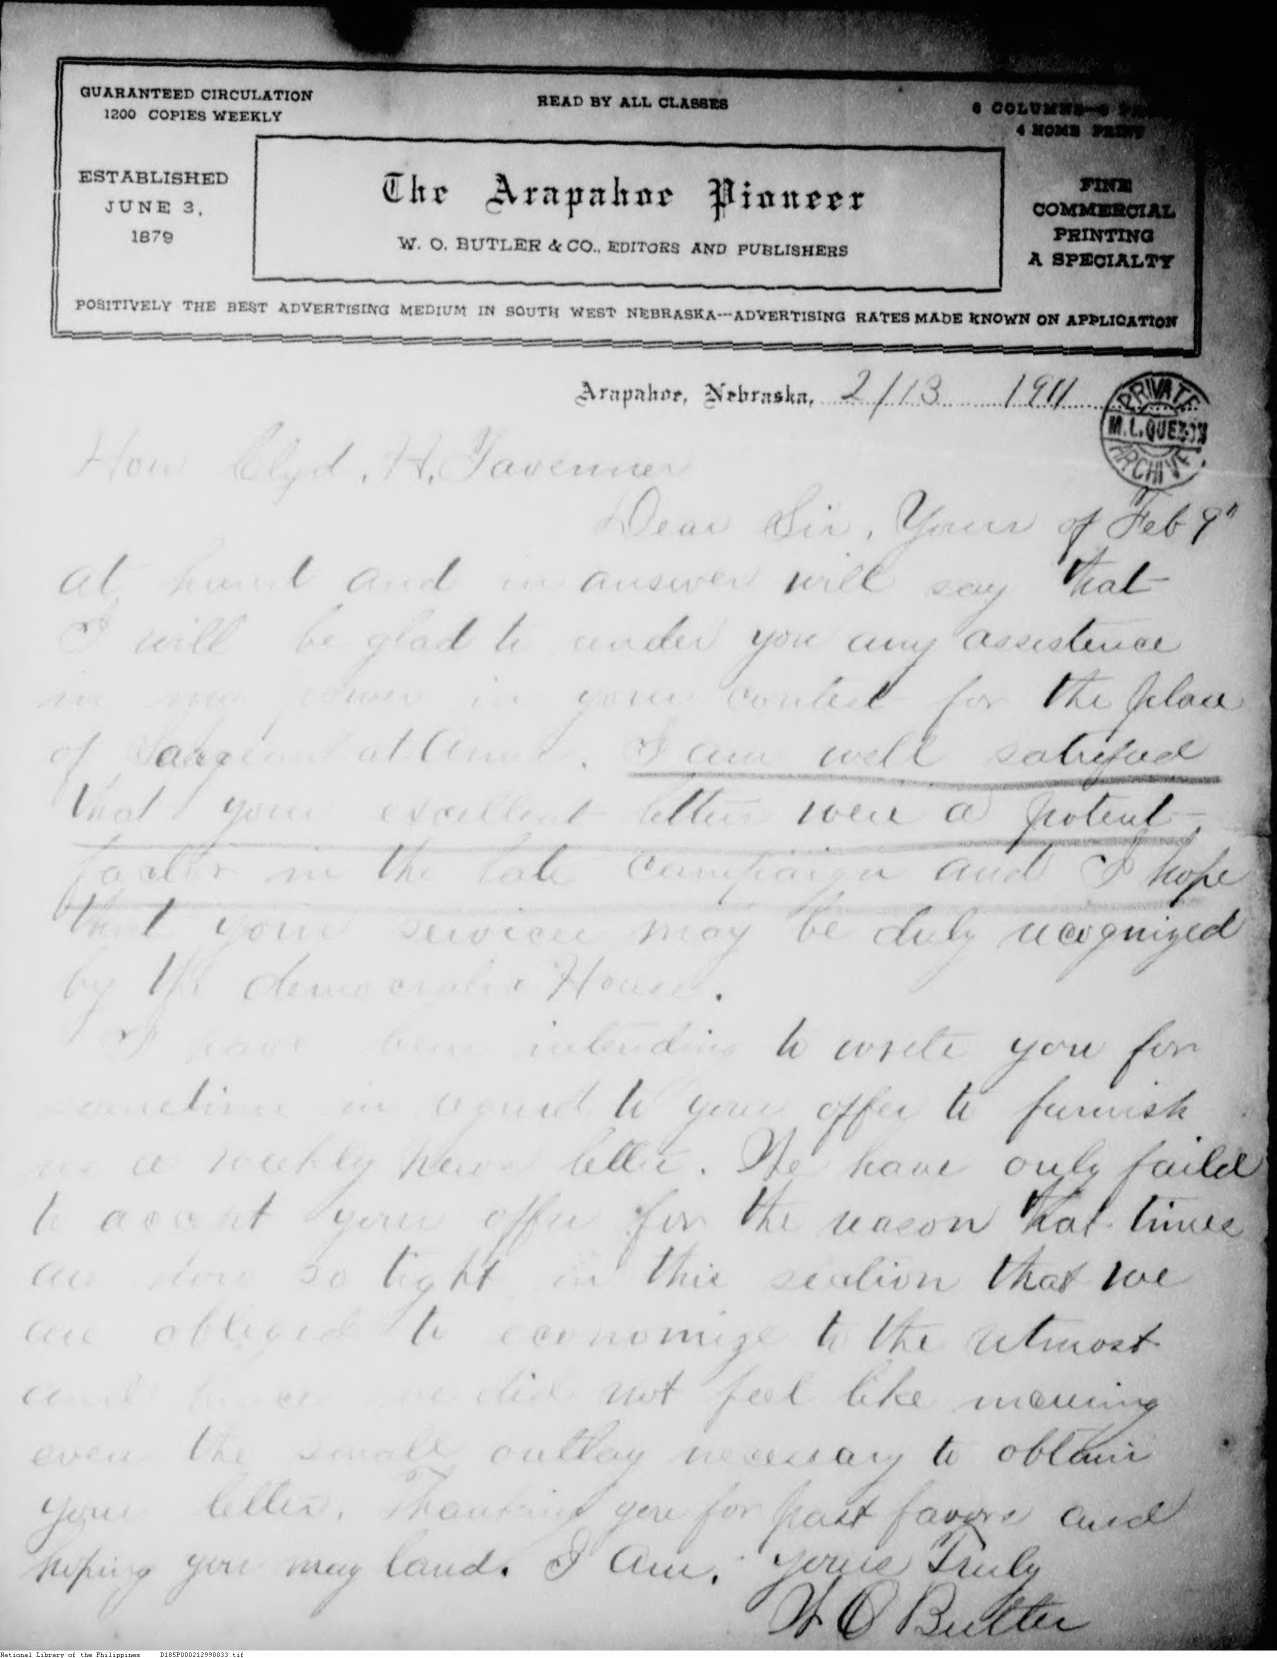 GUARANTEED CIRCULATION
1200 COPIES WEEKLY
READ BY ALL CLASSES
6 COLUMNS
4 HOME PRINT
ESTABLISHED
JUNE 3,
1879
The Arapahoe Pioneer
W. O. BUTLER & CO., EDITORS AND PUBLISHERS
FINE
COMMERCIAL
PRINTING
A SPECIALTY
POSITIVELY THE BEST ADVERTISING MEDIUM IN SOUTH WEST NEBRASKA---ADVERTISING RATES MADE KNOWN ON APPLICATION
Arapahoe, Nebraska, 2/13 1911
PRIVATE
M. L. QUEZON
ARCHIVE
Hon Clyd. H. Tavenner
Dear Sir, Yours of Feb 9"
at hand and in answer will say that
I will be glad to render you any assistence
in my power in your contest for the place
of Sargeant at Arms. I am well satisfied
that your excellent letters were a potent
factor in the late campaign and I hope
that your services may be duly recognized
by the democratic House.
I have been intending to write you for
sometime in regard to your offer to furnish
us a weekly news letter. We have only faild
to accept your offer for the reason that times
are now so tight in this section that we
are obliged to economize to the utmost
and hence we did not feel like incuring
even the small outlay necessary to obtain
your letter. Thanking you for past favors and
hoping you may land. I Am, yours Truly
W O Butler
National Library of the Philippines D185P000212990033.tif